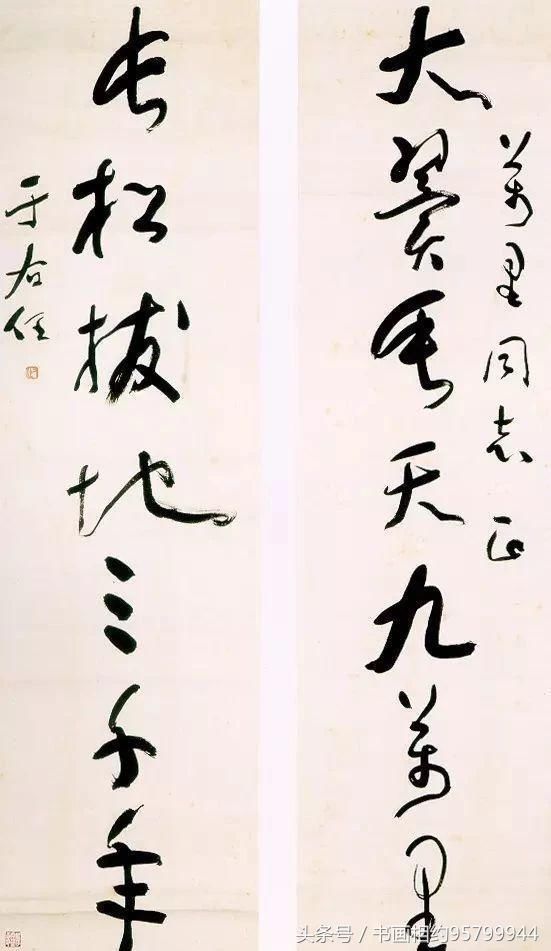 萬里同志正
大翼垂天九萬里
長松拔地三千年
于右任
头条号 / 书画相约95799944